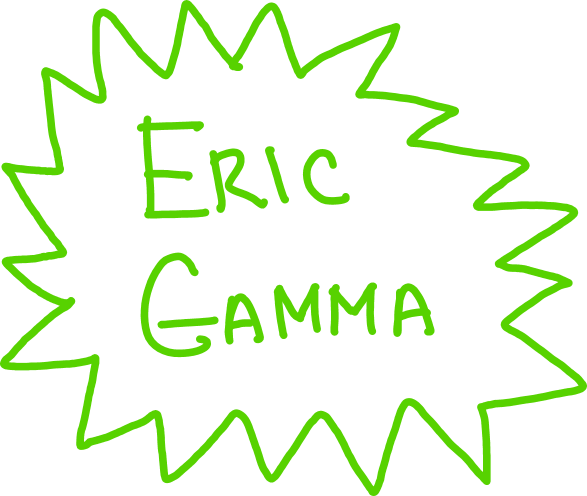 ERIC
GAMMA